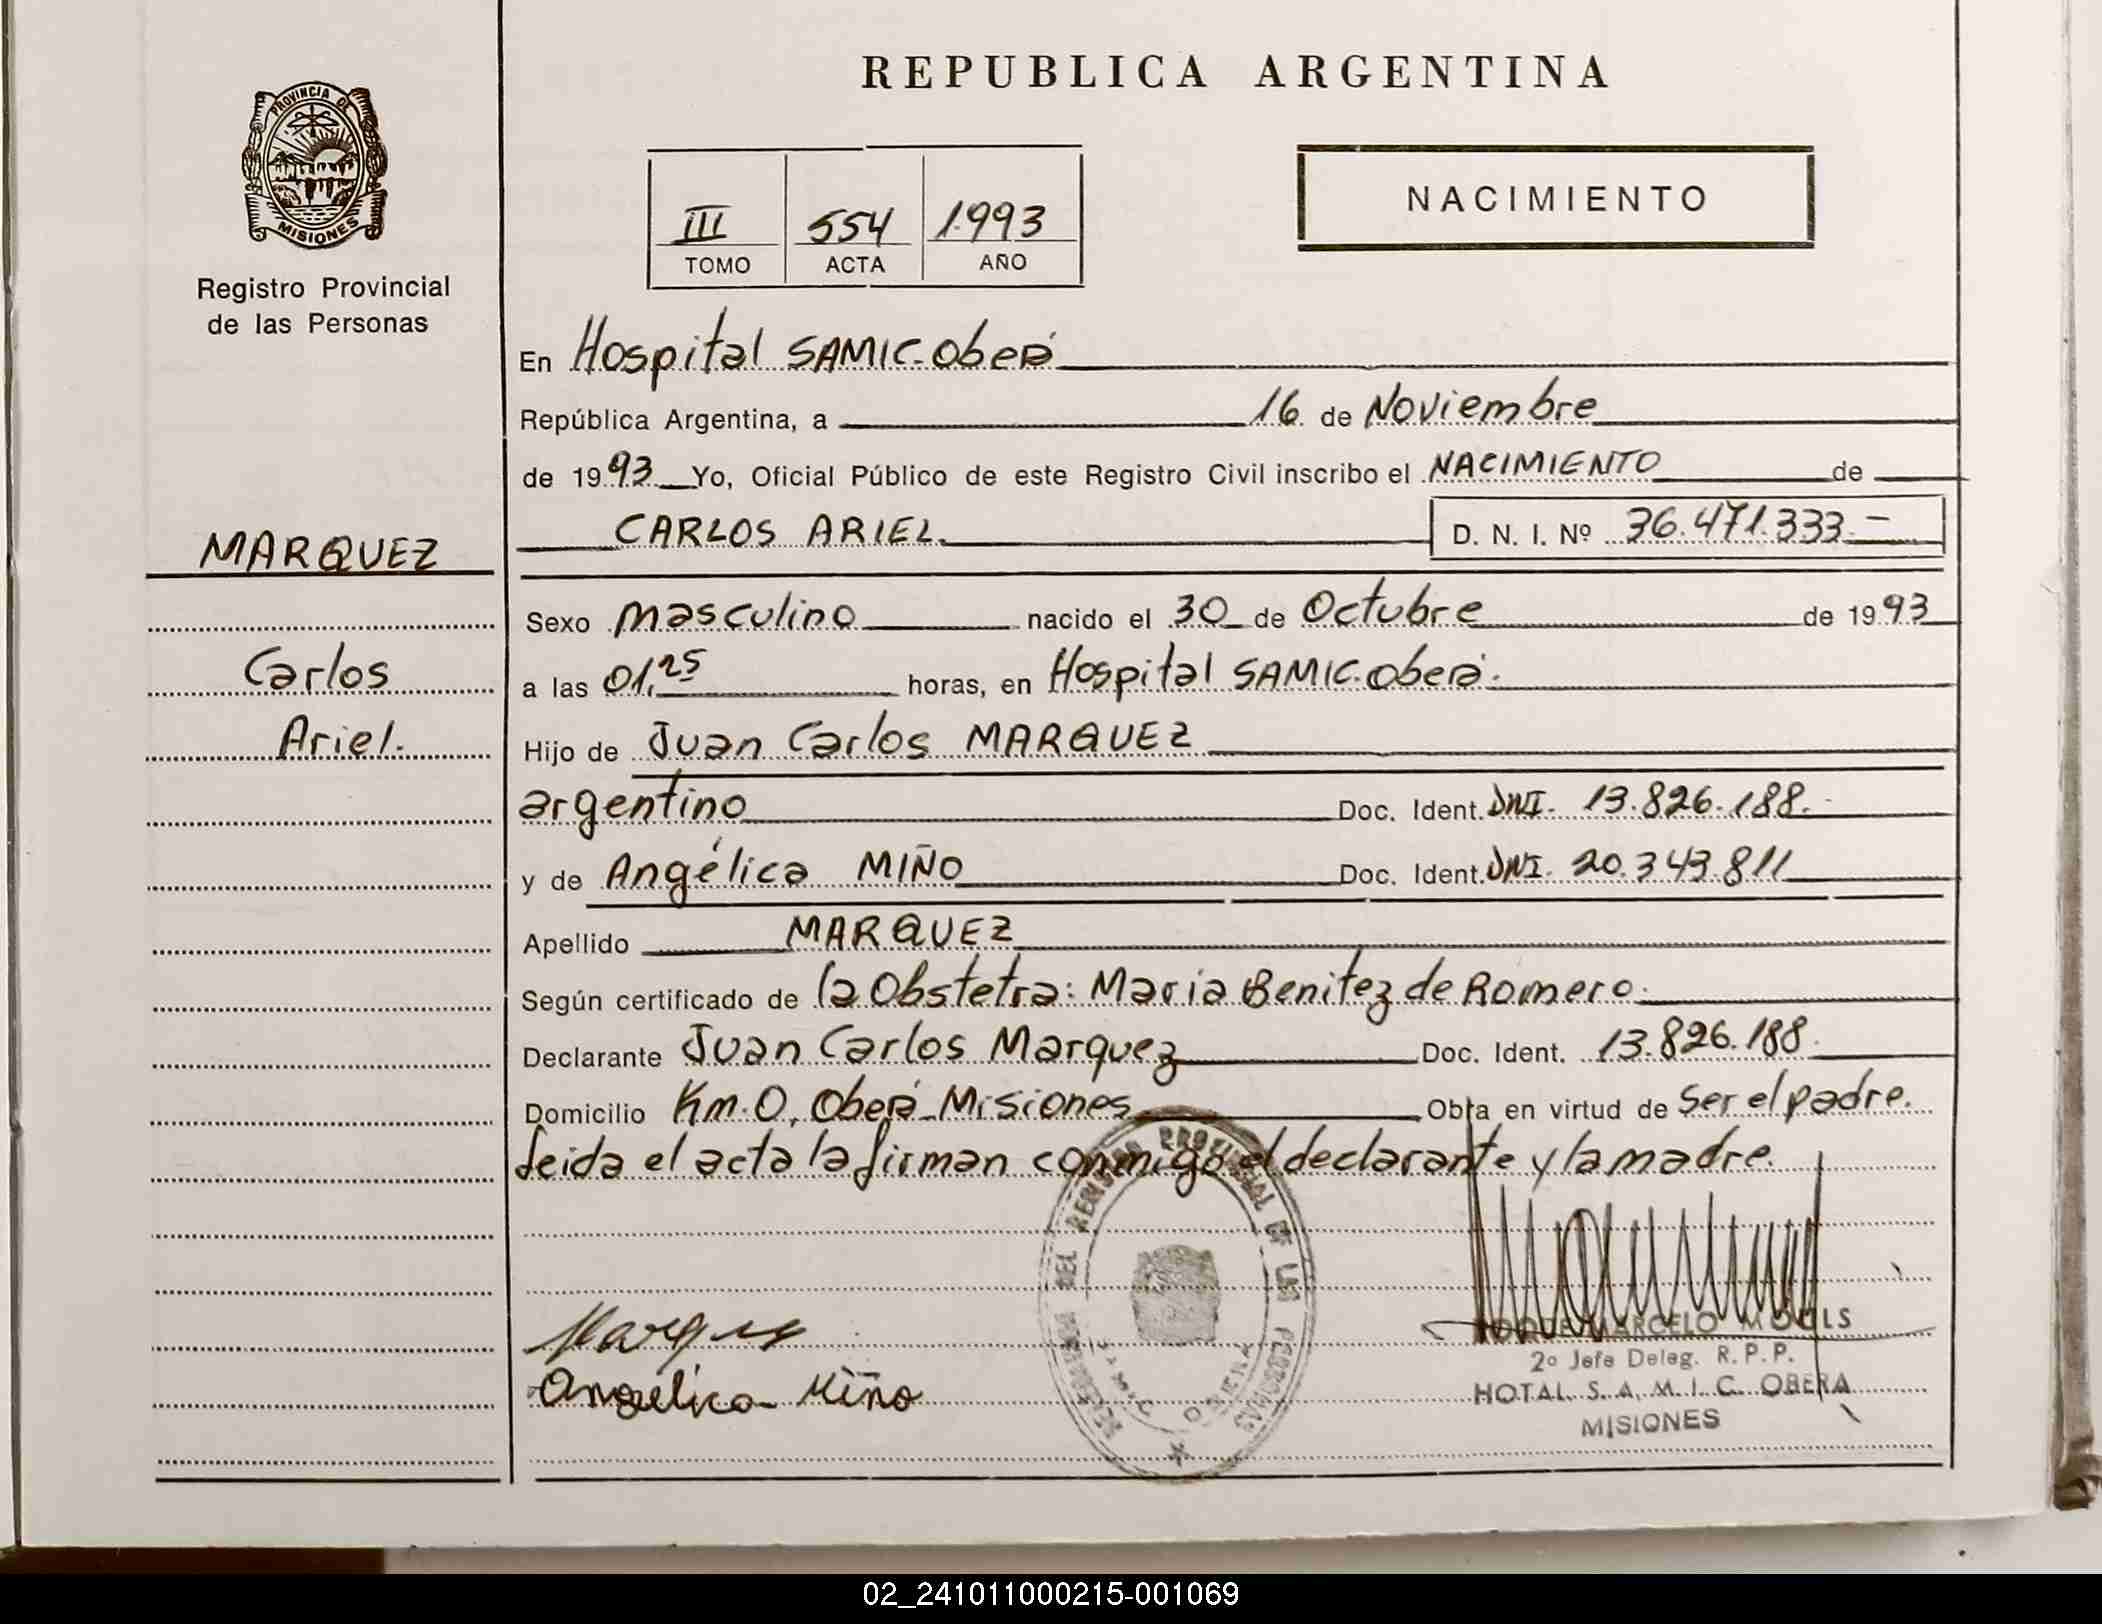 REPUBLICA ARGENTINA
PROVINCIA DE MISIONES
Registro Provincial
de las Personas
III 554 1.993
TOMO ACTA AÑO
NACIMIENTO
En Hospital SAMIC-Oberá
República Argentina, a 16 de Noviembre
de 1993 Yo, Oficial Público de este Registro Civil inscribo el NACIMIENTO de
MARQUEZ
CARLOS ARIEL. D. N. I. Nº 36.471.333.-
Sexo masculino nacido el 30 de Octubre de 1993
Carlos
a las 01,25 horas, en Hospital SAMIC-Oberá.
Ariel.
Hijo de Juan Carlos MARQUEZ
argentino Doc. Ident. DNI. 13.826.188.-
y de Angélica MIÑO Doc. Ident. DNI. 20.343.811
Apellido MARQUEZ
Según certificado de la Obstetra: Maria Benitez de Romero.
Declarante Juan Carlos Marquez Doc. Ident. 13.826.188.
Domicilio Km.0, Oberá-Misiones Obra en virtud de ser el padre.
Leida el acta la firman conmigo el declarante y la madre.
DEL REGISTRO PROVINCIAL DE LAS PERSONAS
Marquez
Angélica Miño
ROQUE MARCELO
2º Jefe Deleg. R.P.P.
HOTAL. S. A. M. I. C. OBERA
MISIONES
02_241011000215-001069